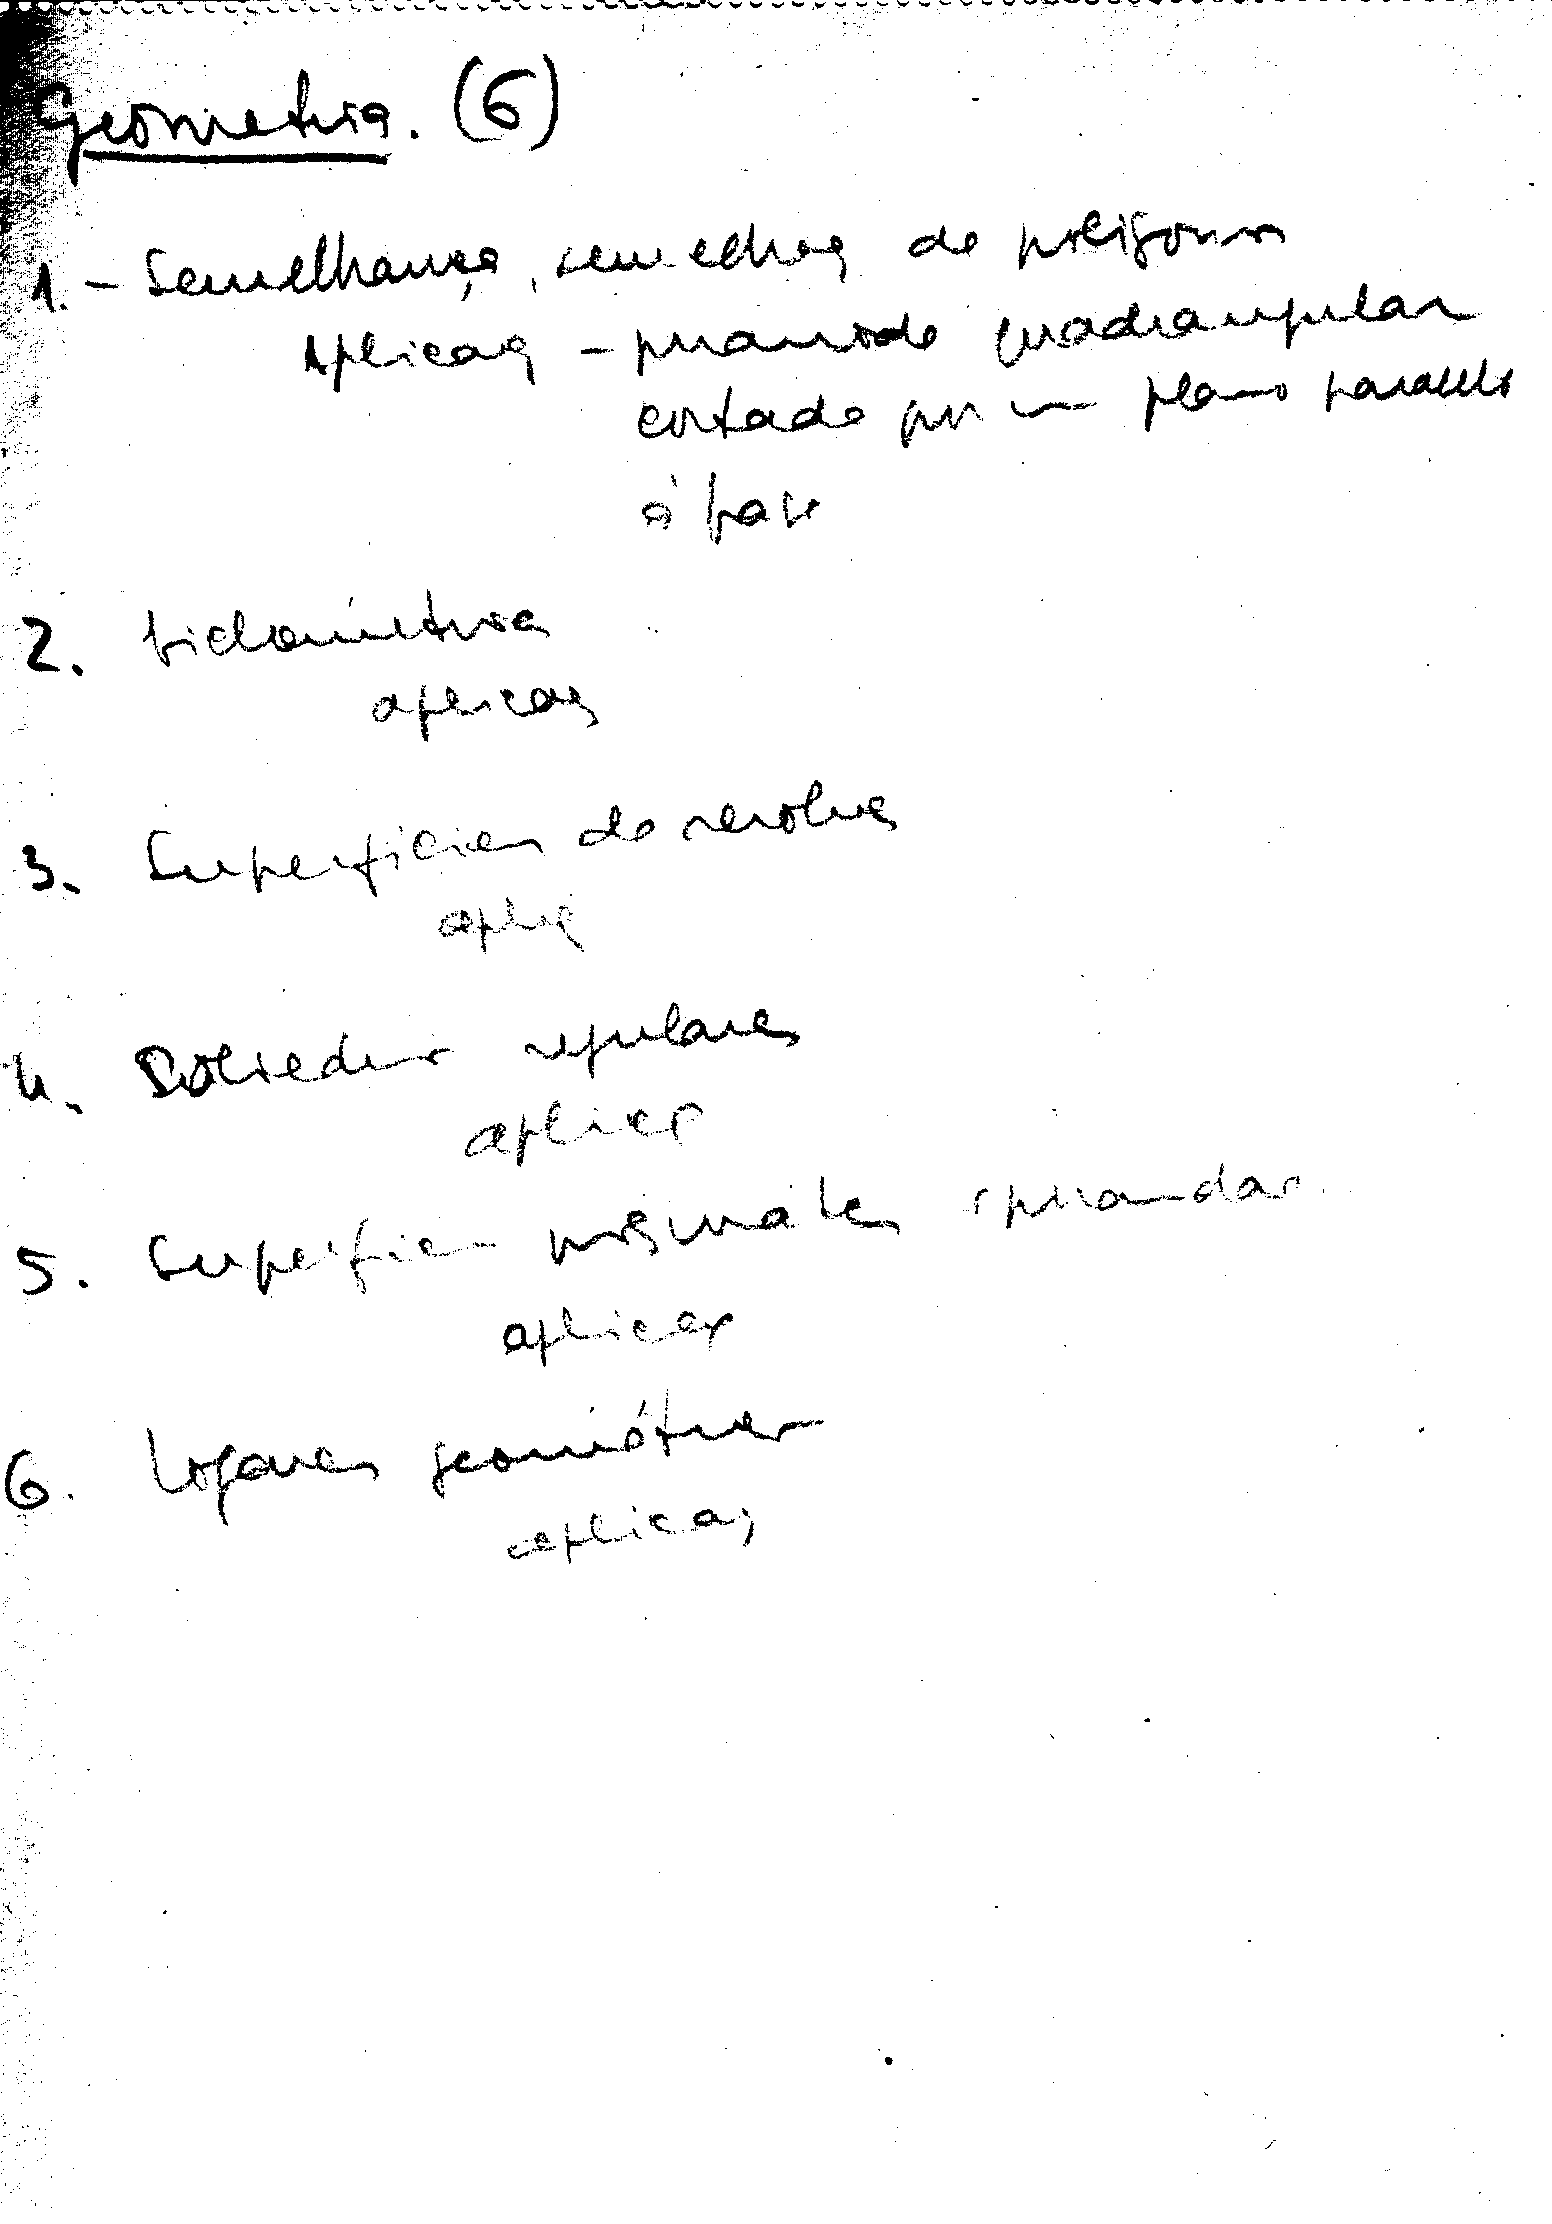 Geometria. (6)
1. - Semelhança, semelhança de polígonos
Aplicaç - pirâmide quadrangular
cortada por um plano paralelo
à base
2.
aplicaç
3. Superfícies de revoluç
aplic
4. Poliedros regulares
aplicaç
5. Superfícies prismáticas e piramidais
aplicaç
6. Lugares geométricos
aplicaç